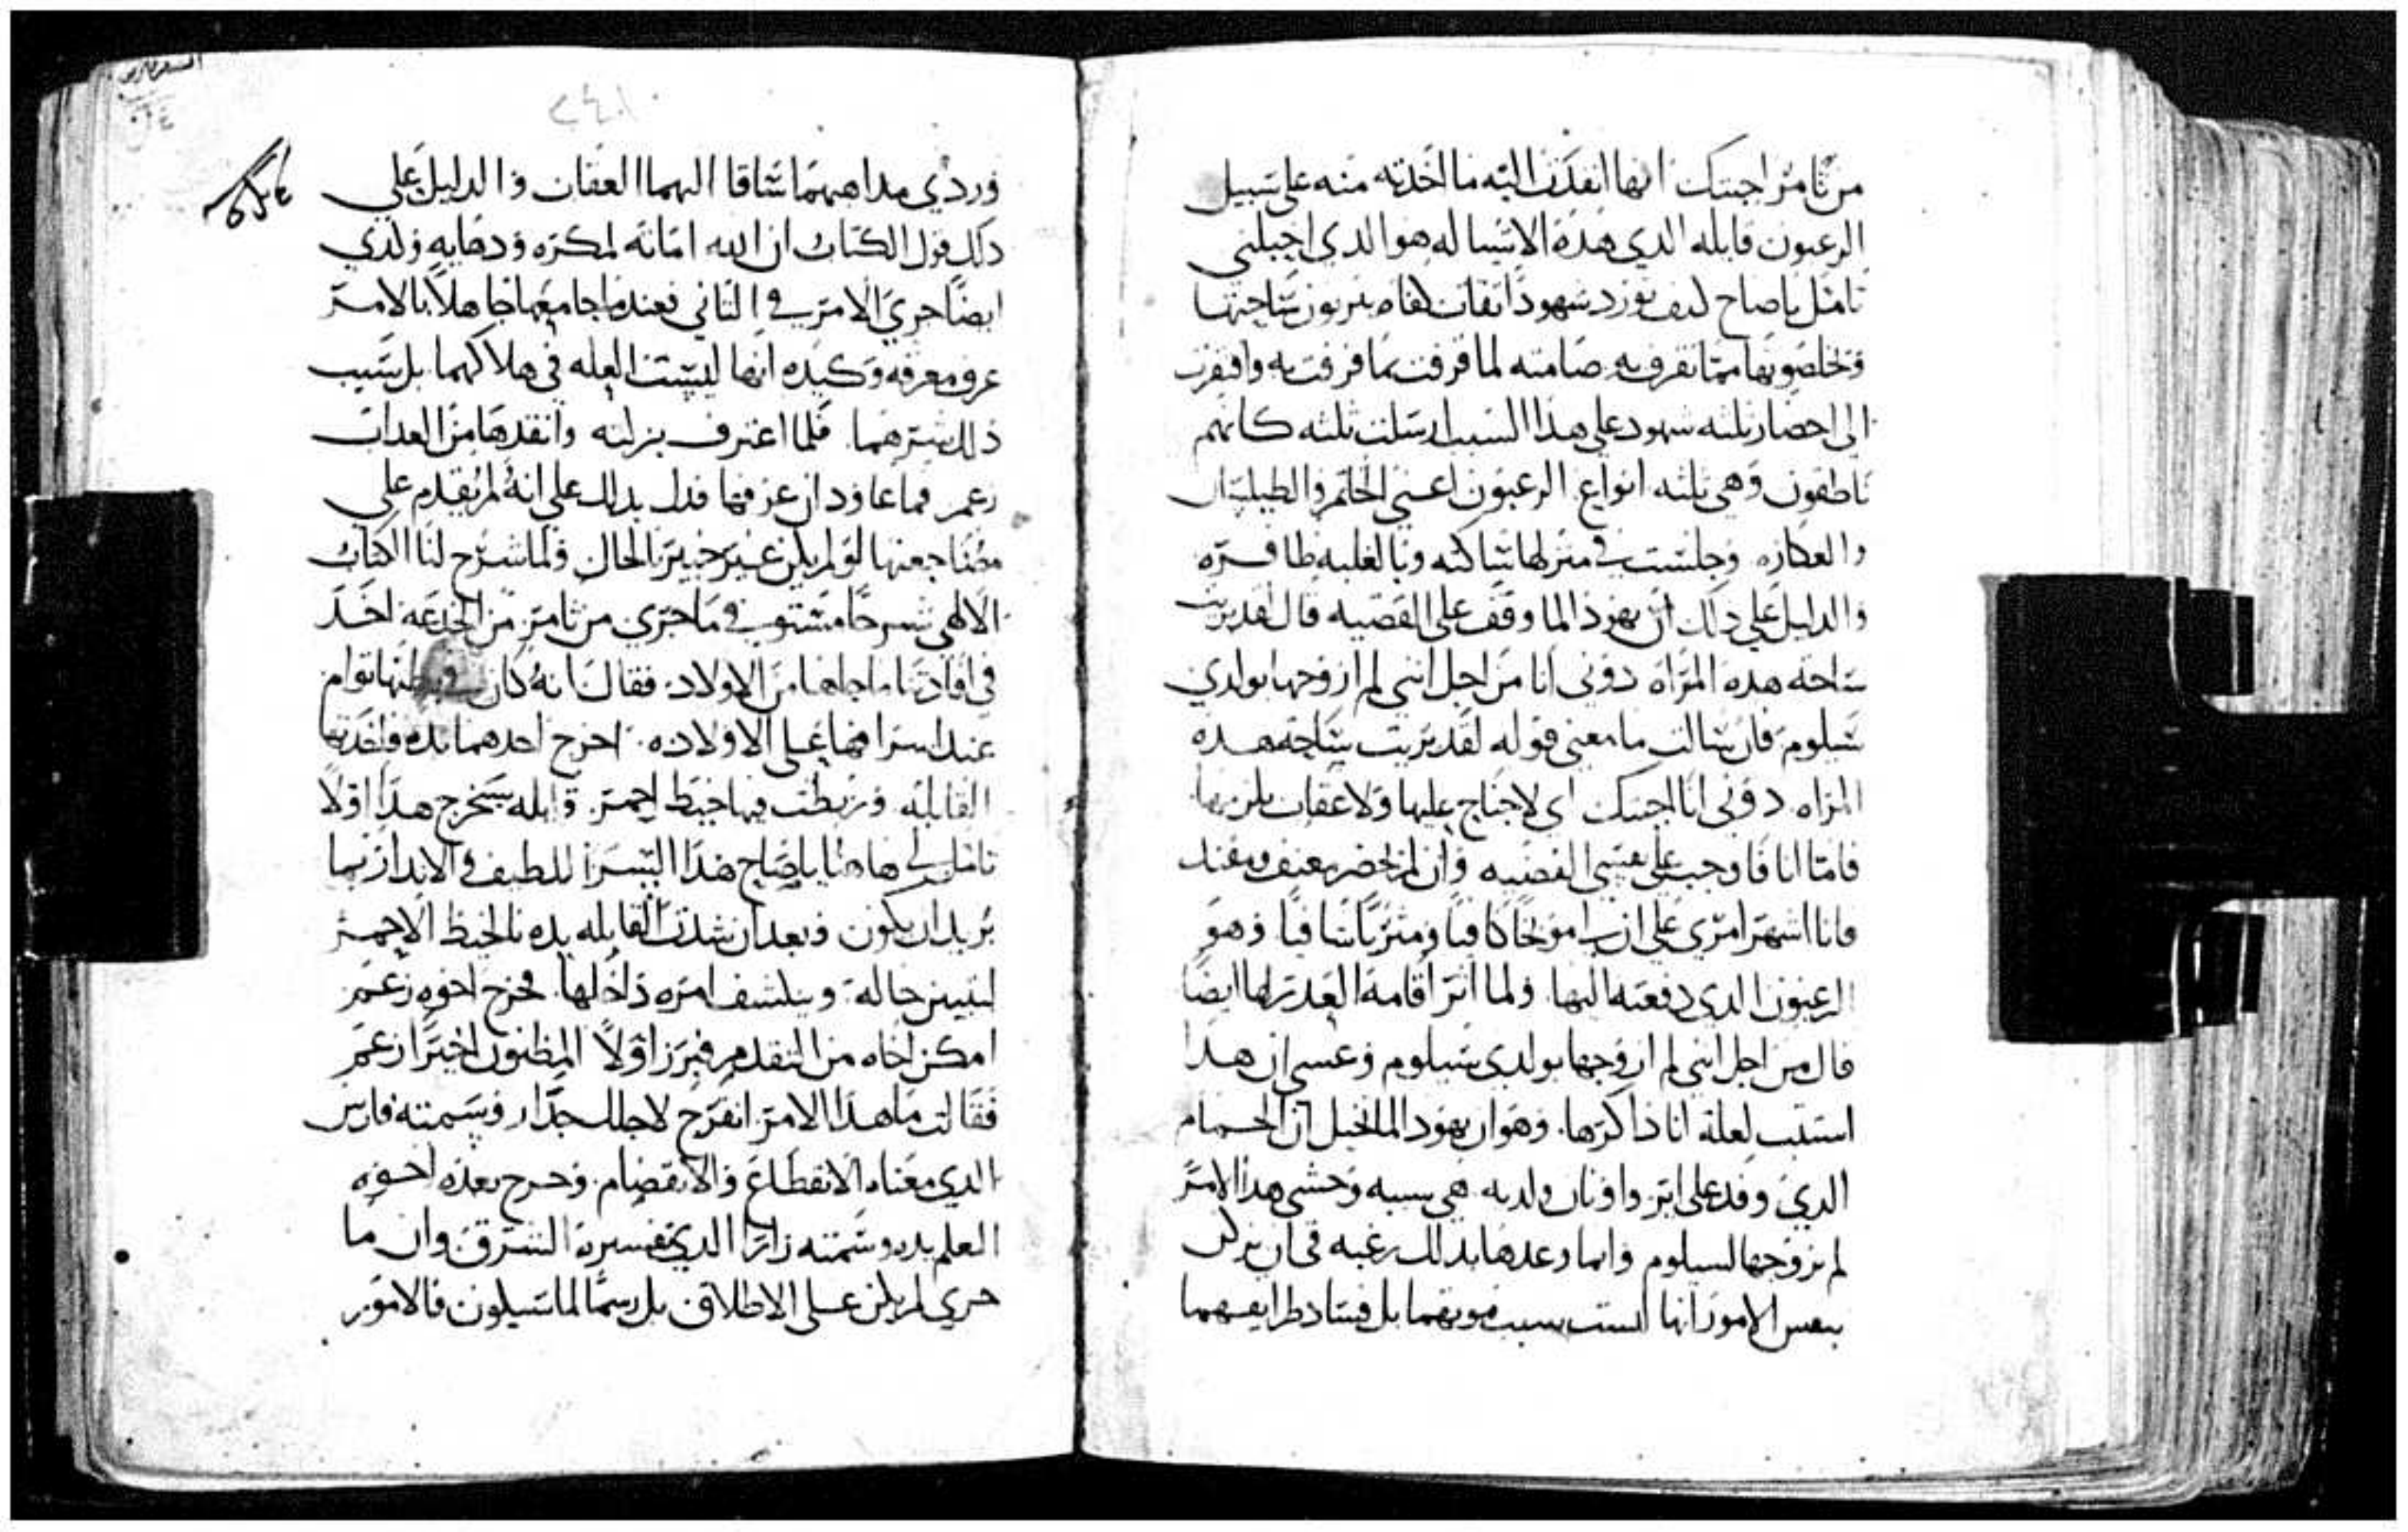 من ثامر اجبتك انها انفدت اليه ما اخدته منه على سبيل
الرعبون قايله الدي هده الاشيا له هو الدي احبلني
تامل ياصاح كيف تورد شهودا ثقات يبربون ساحتها
ويخلصونها مما تقرف به صامته لما قرفت بما قرفت به وافتقرت
الى احضار ثلثه شهود على هدا السبب ارسلت ثلثه كانهم
ناطقون وهي ثلثه انواع الرعبون اعني الخاتم والطيلسان
والعكازه وجلست في منزلها ساكته وبالغلبه ظافره
والدليل على دلك ان يهودا لما وقف على القضيه قال لقد بريت
ساحة هده المراه دوني انا من اجل انني لم ازوجها بولدي
شيلوم فان سالت ما معنى قوله لقد بريت ساحة هده
المراه دوني انا اجبتك اي لا جناح عليها ولا عقاب يلزمها
فاما انا فاوجب على نفسي القضيه وان لم يحضر معنف ومفند
فانا اشهر امري على ان لي موبخا كافيا ومثربا شافيا وهو
الرعبون الدي دفعته اليها ولما اثر اقامة العدر لها ايضا
قال من اجل انني لم ازوجها بولدي شيلوم وعسى ان هدا
استتب لعلة انا داكرها وهو ان يهودا لما تخيل ان الحمام
الدي وفد على اير واونان ولديه هي سببه وخشي هدا الامر
لم يزوجها لشيلوم وانما وعدها بدلك رغبه في ان يدكر
ببعس الامور انها ليست سبب موتهما بل فساد طرايقهما
وردي مداهبهما ساقا اليهما العقاب والدليل على
دلك قول الكتاب ان الله اماته لمكره ودهايه ولدي
ايضا جرى الامر في الثاني فعندما جامعها جاهلا بالامر
عرف معرفه وكيده انها ليست العله في هلاكهما بل سبب
ذلك شرهما فلما اعترف بزلته وانقدها من العداب
زعم فما عاود ان عرفها فدل بدلك على انه لم يقدم على
مضاجعتها لو لم يكن غير خبير بالحال ولما شرح لنا الكتاب
الالهي شرحا مستوفي ما جرى من ثامر من الخدعه اخد
في افادتنا ما جاها من الاولاد فقال انه كان في بطنها توام
عند اشرافها على الاولاده اخرج احدهما يده فاخدتها
القابله وربطت فيها خيط احمر قايله سيخرج هدا اولا
تامل لي هاهنا ياصاح هدا السر اللطيف والاندار بما
يريد ان يكون وبعد ان شدت القابله يده بالخيط الاحمر
ليبين حاله وينكشف امره داخلها فخرج اخوه زعم
امكن اخاه من التقدم فبرز اولا المظنون اخيرا زعم
فقالت ما هدا الامر انفرج لاجلك جدار وسمته فارس
الدي معناه الانقطاع والانفصام وخرج بعده اخوه
العلم بيده وسمته زارا الدي تفسيره الشرق وان ما
جرى لم يكن على الاطلاق بل رسما لما سيكون فالامور